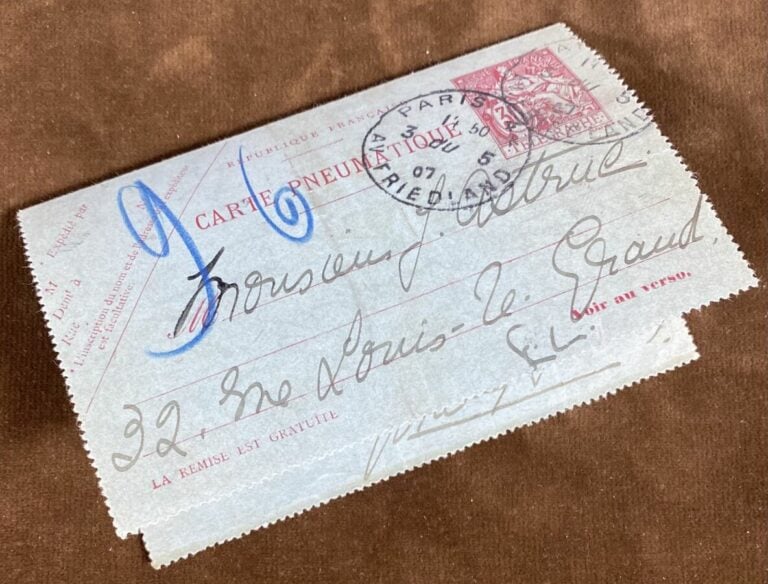 RÉPUBLIQUE FRANÇAISE
CARTE PNEUMATIQUE
TÉLÉGRAPHE
PARIS
17 50
3 JU 5
07
AV FRIEDLAND
96
M
Expédié par
Dont à
Rue
L'inscription du nom et de l'adresse de l'expéditeur
est facultative.
Monsieur J. Astruc.
32, rue Louis-le-Grand.
Voir au verso.
E.L.
LA REMISE EST GRATUITE